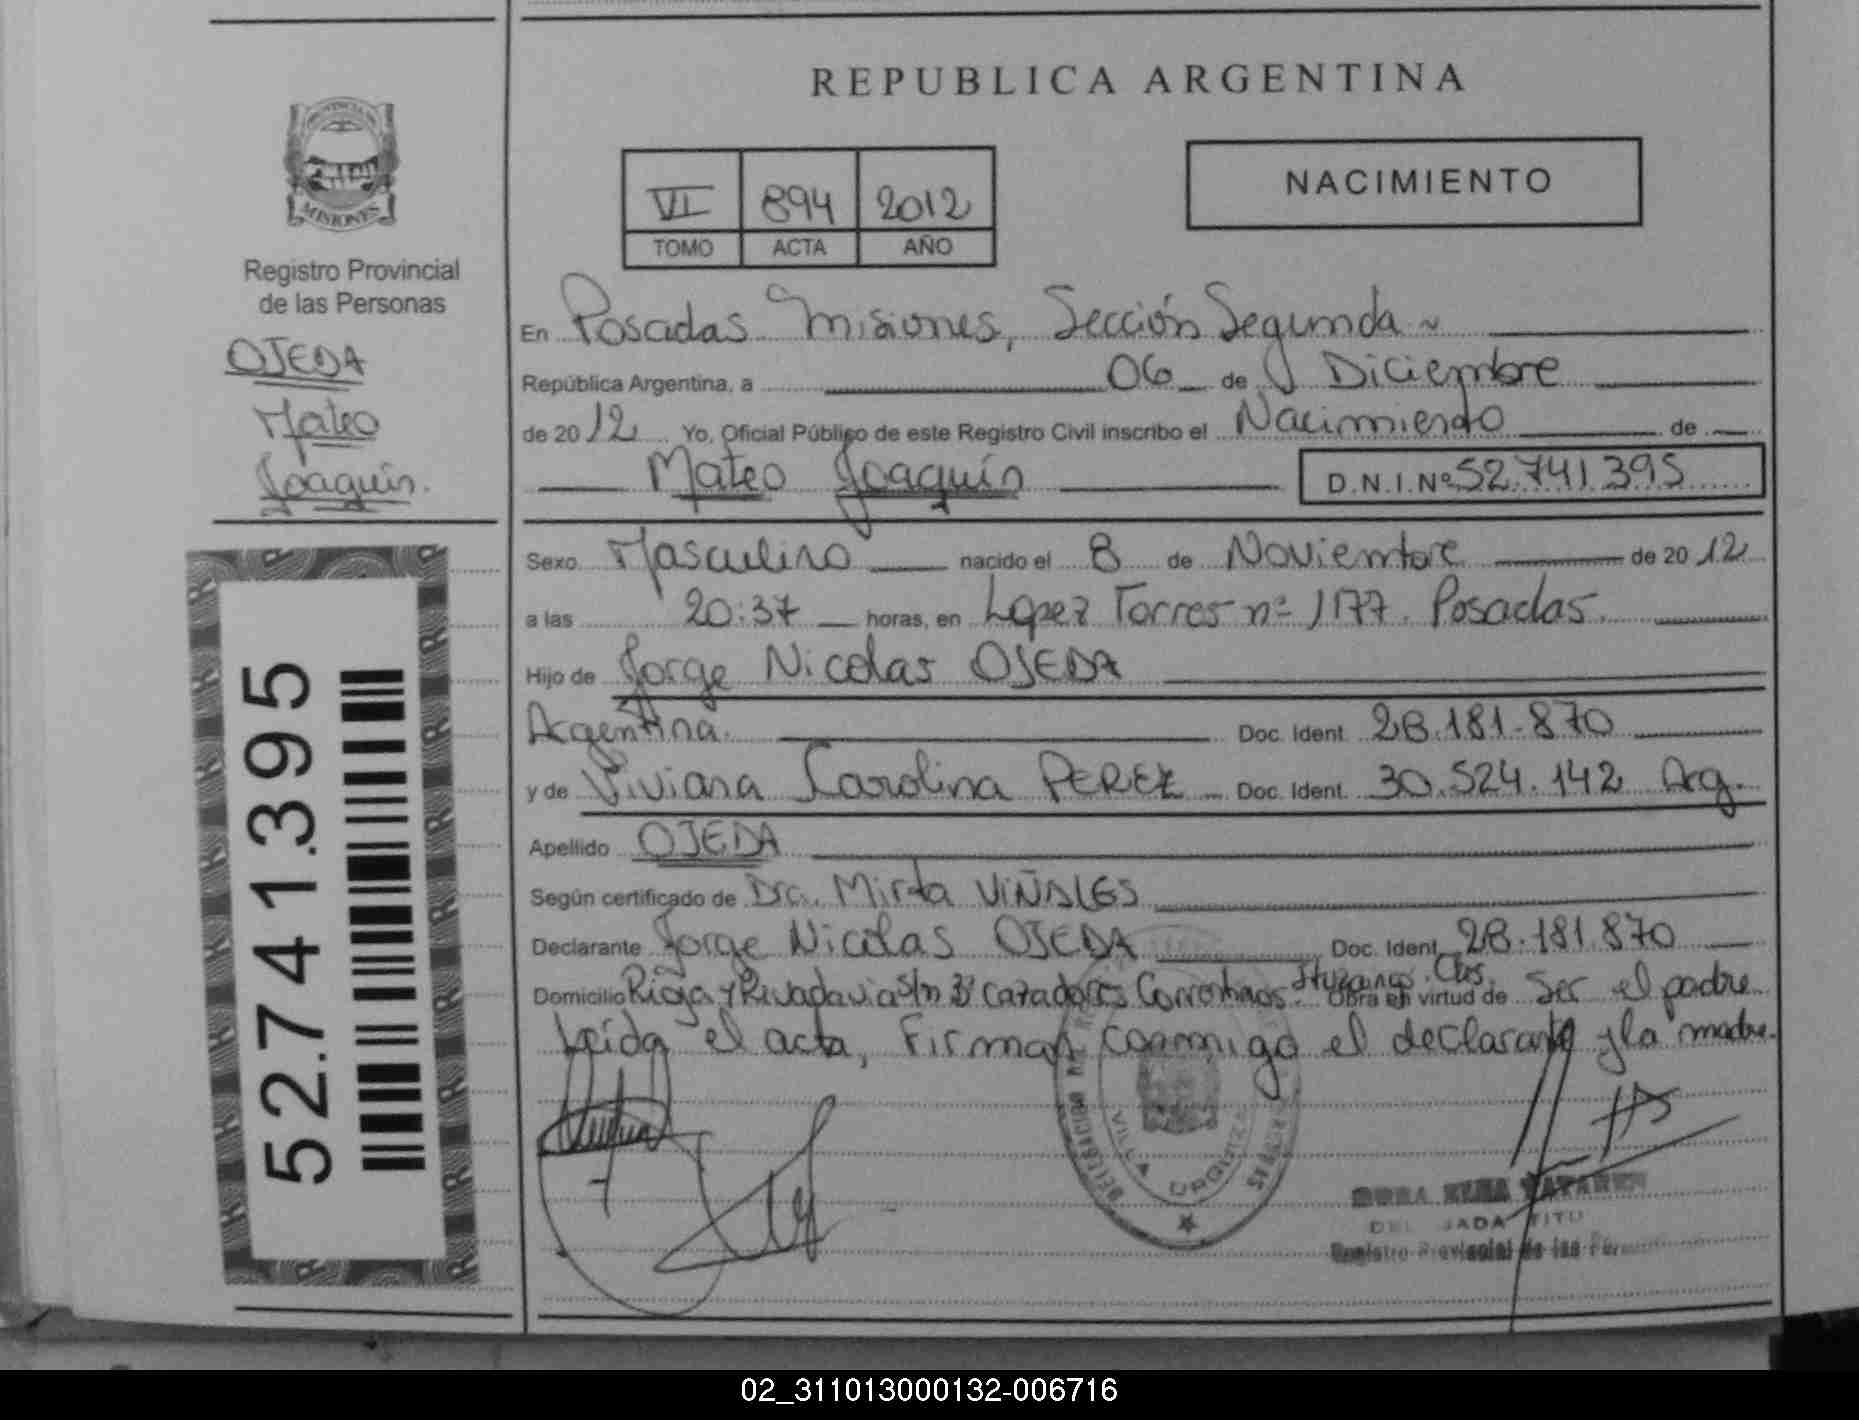 REPUBLICA ARGENTINA
NACIMIENTO
PROVINCIA DE
MISIONES
VI 894 2012
TOMO ACTA AÑO
Registro Provincial
de las Personas
OJEDA
Mateo
Joaquín.
En Posadas Misiones, Sección Segunda
República Argentina, a 06 de Diciembre
de 2012 Yo, Oficial Público de este Registro Civil inscribo el Nacimiento de
Mateo Joaquín D.N.I.Nº 52.741.395
Sexo Masculino nacido el 8 de Noviembre de 2012
a las 20:37 horas, en Lopez Torres nº 1177. Posadas.
Hijo de Jorge Nicolas OJEDA
Argentina. Doc. Ident. 28.181.870
y de Viviana Carolina PEREZ Doc. Ident. 30.524.142 Arg.
Apellido OJEDA
Según certificado de Dra. Mirta VIÑALES
Declarante Jorge Nicolas OJEDA Doc. Ident. 28.181.870
Domicilio Rioja y Rivadavia s/n Bº Cazadores Correntinos. Ituzaingo. Ctes. Obra en virtud de Ser el padre
Leída el acta, Firman conmigo el declarante y la madre.
52.741.395
VILLA URQUIZA
Registro Provincial de las
02_311013000132-006716